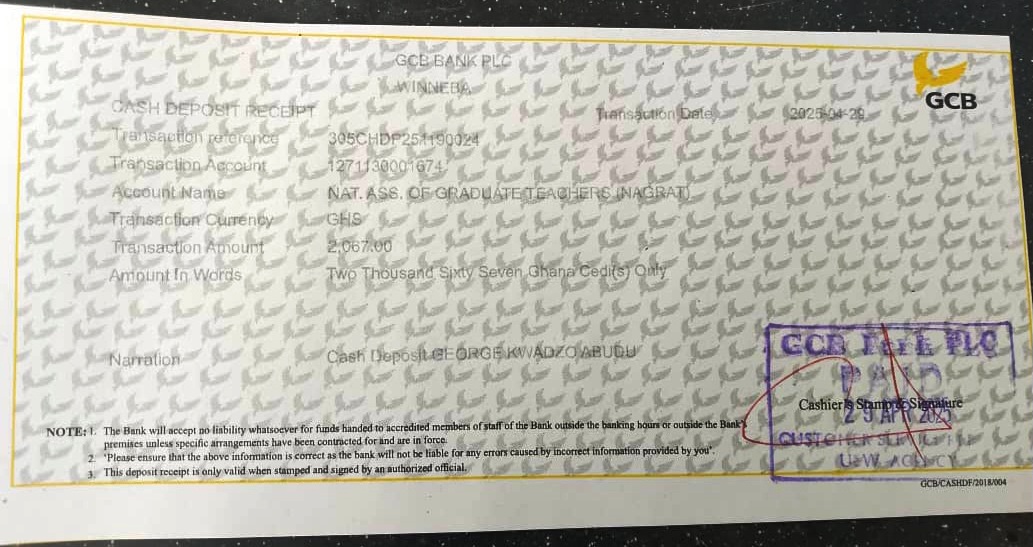 GCB BANK PLC
WINNEBA
GCB
CASH DEPOSIT RECEIPT Transaction Date 2025-04-29
Transaction reference 305CHDP251190024
Transaction Account 1271130001674
Account Name NAT. ASS. OF GRADUATE TEACHERS (NAGRAT)
Transaction Currency GHS
Transaction Amount 2,067.00
Amount In Words Two Thousand Sixty Seven Ghana Cedi(s) Only
Narration Cash Deposit GEORGE KWADZO ABUDU
GCB PLC
PAID
Cashier's Stamp & Signature
29 APR 2025
CUSTOMER
UEW AGENCY
NOTE: 1. The Bank will accept no liability whatsoever for funds handed to accredited members of staff of the Bank outside the banking hours or outside the Bank's
premises unless specific arrangements have been contracted for and are in force.
2. 'Please ensure that the above information is correct as the bank will not be liable for any errors caused by incorrect information provided by you'.
3. This deposit receipt is only valid when stamped and signed by an authorized official.
GCB/CASHDF/2018/004